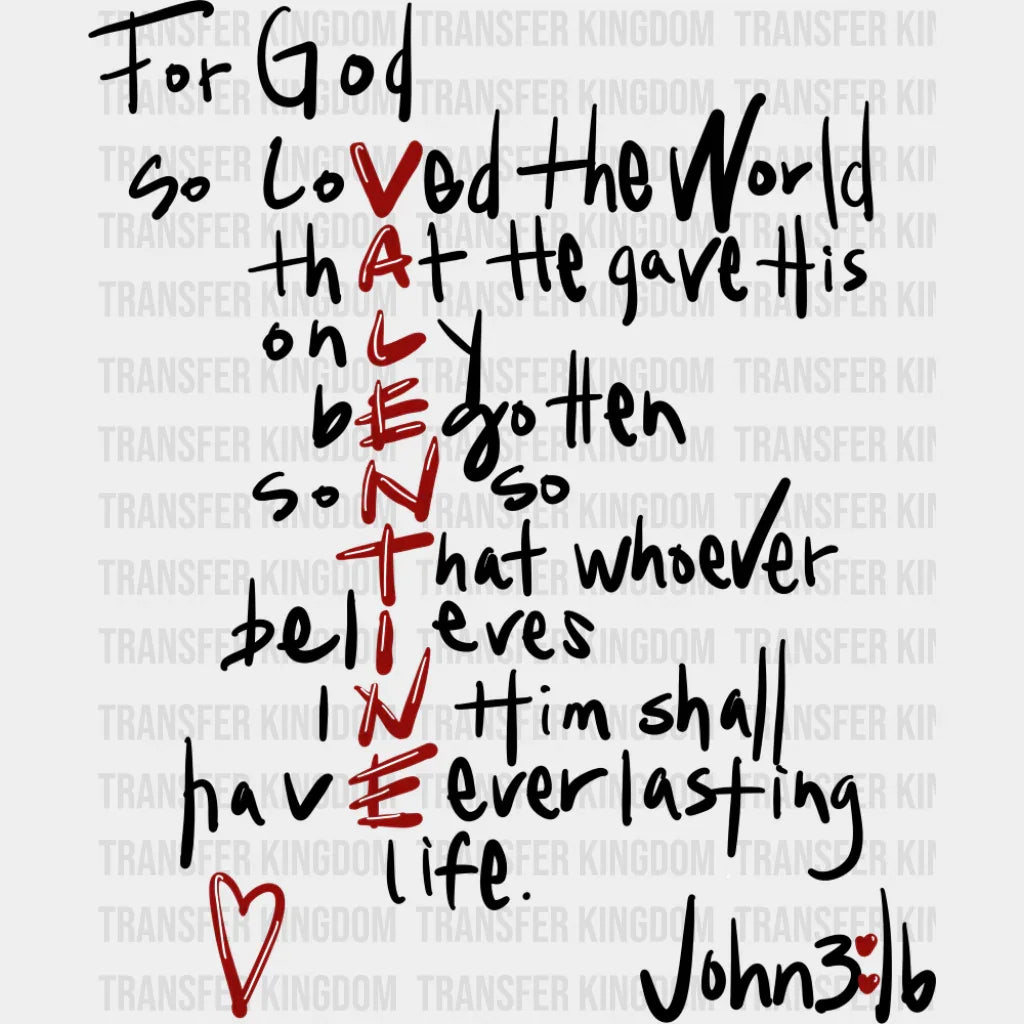 For God
so loVed the World
thAt He gave His
onLy
bEgotten
soN so
That whoever
belIeves
iN Him shall
havE everlasting
life.
John 3:16
TRANSFER KINGDOM TRANSFER KINGDOM TRANSFER KIN